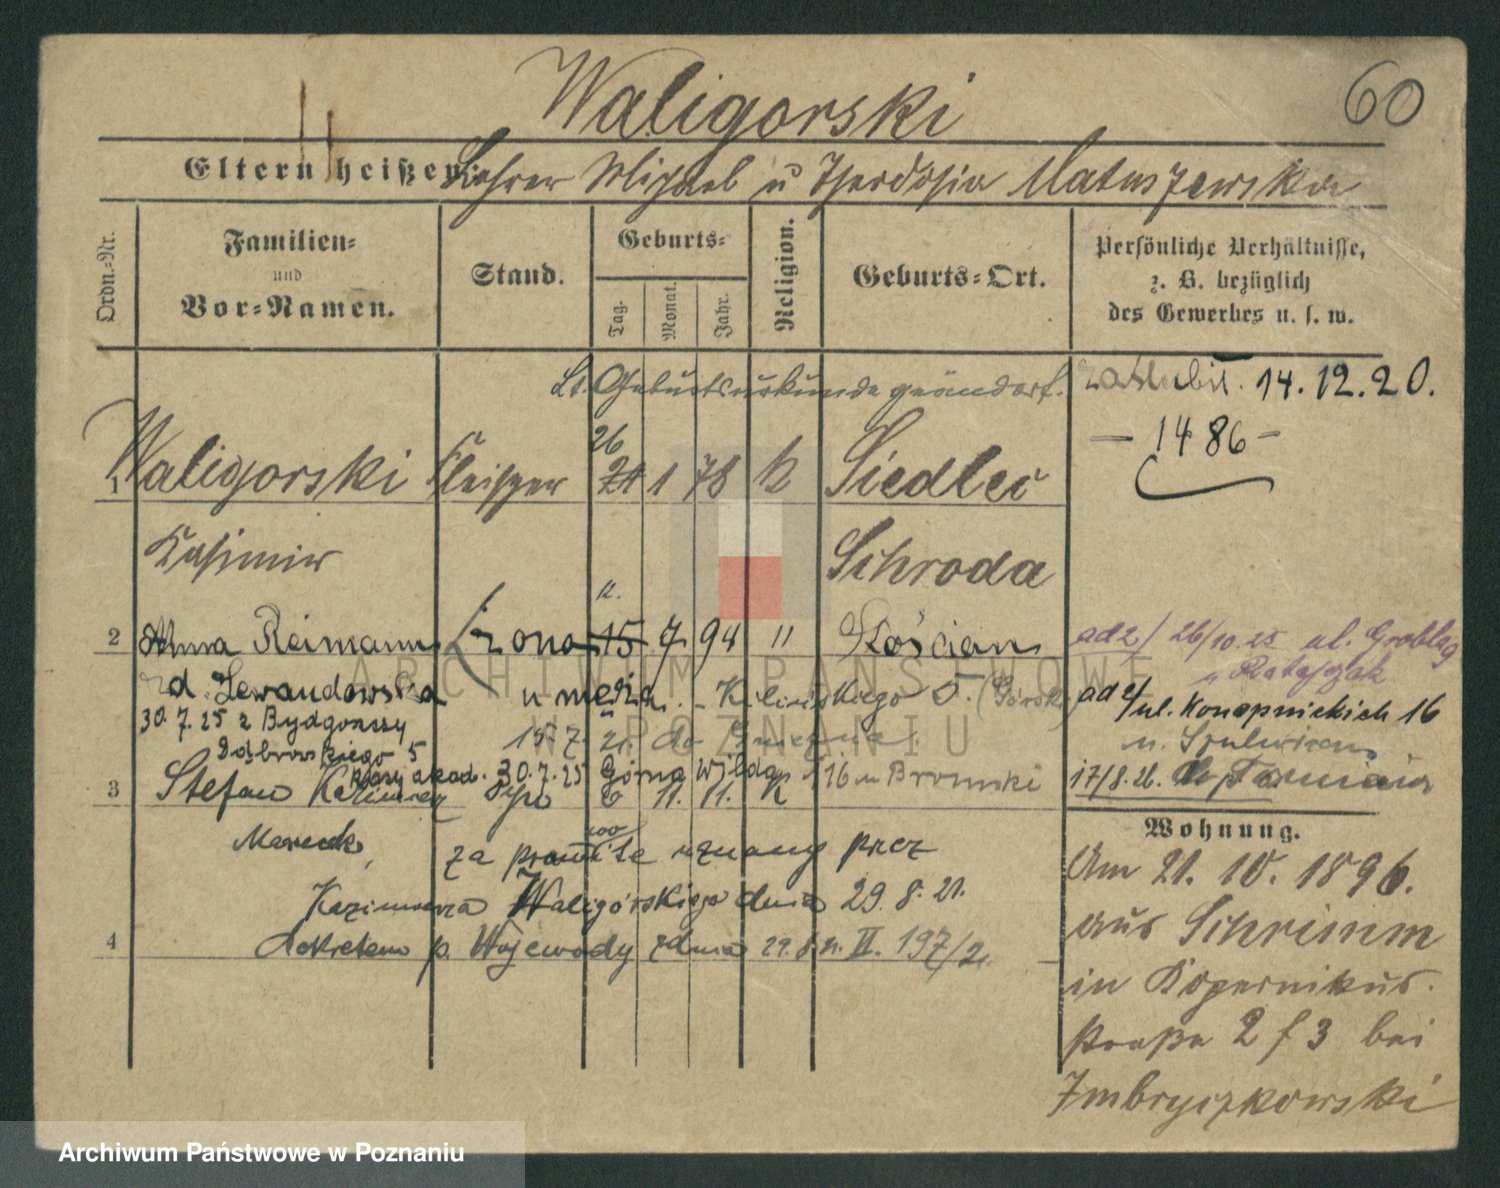 Waligorski
60
Eltern heißen: Lehrer Michael u Theodosia Matuszewska
Ordn.-Nr.
Familien-
und
Vor-Namen.
Stand.
Geburts-
Tag.
Monat.
Jahr.
Religion.
Geburts-Ort.
Persönliche Verhältnisse,
z. B. bezüglich
des Gewerbes u. s. w.
Lt. Geburtsurkunde geändert.
14.12.20.
— 1486 —
26
1 Waligorski Fleischer 24 1 78 k Siedlec
Kasimir Schroda
k.
2 Anna Reimann żona 15 7 94 " Kościan
ad 2/ 26/10.25 ul. Grobla 9
u Ratajczak
zd. Lewandowska u męża. - Kilińskiego 5.
ad 2/ ul. Konopnickiej 16
30.7.25 z Bydgoszczy
15.7. 21. do Gniezna.
Dąbrowskiego 5
30.7.25 Górna Wilda 116 u Bromski
3 Stefan Kazimierz syn 6 11. 11. k
17/8.26.
Marcel
za prawite uznany prez
Kazimierza Waligórskiego dnia 29.8.21.
4 dekretem p. Wojewody z dnia 29.8.21. II. 197/21.
Wohnung.
Am 21.10.1896.
aus Schrimm
in Kopernikus-
straße 2 f 3 bei
Imbryczkowski
ARCHIWUM PAŃSTWOWE
W POZNANIU
Archiwum Państwowe w Poznaniu